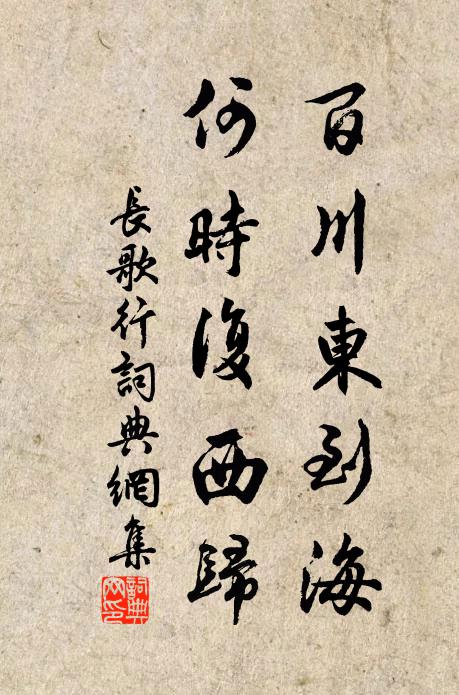 百川東到海
何時復西歸
長歌行詞典網集
詞典
网印